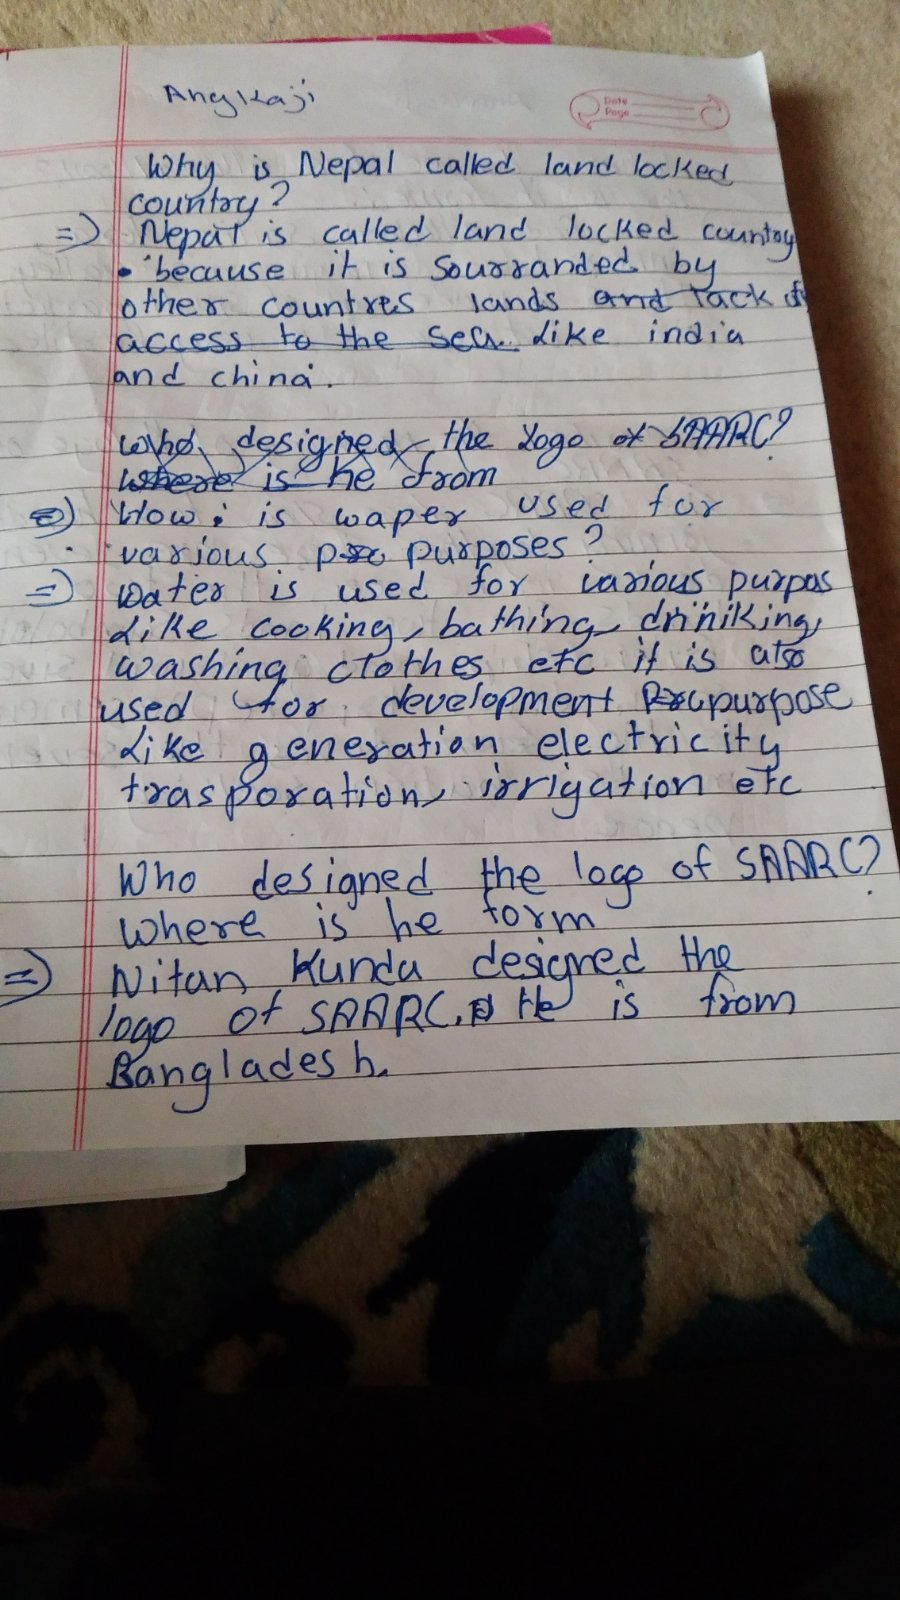 Angkaji
Date
Page
Why is Nepal called land locked
country?
=) Nepal is called land locked country
• because it is sourranded by
other countres lands and lack of
access to the sea. Like india
and china.
Who designed the logo of SAARC?
where is he from
=) How is waper used for
various pro purposes?
=) water is used for various purpas
Like cooking, bathing, driniking,
washing clothes etc it is also
used for development Pru purpose
Like generation electricity
trasporation, irrigation etc
Who designed the logo of SAARC?
where is he form
=) Nitan Kunda designed the
logo of SAARC. He is from
Bangladesh.